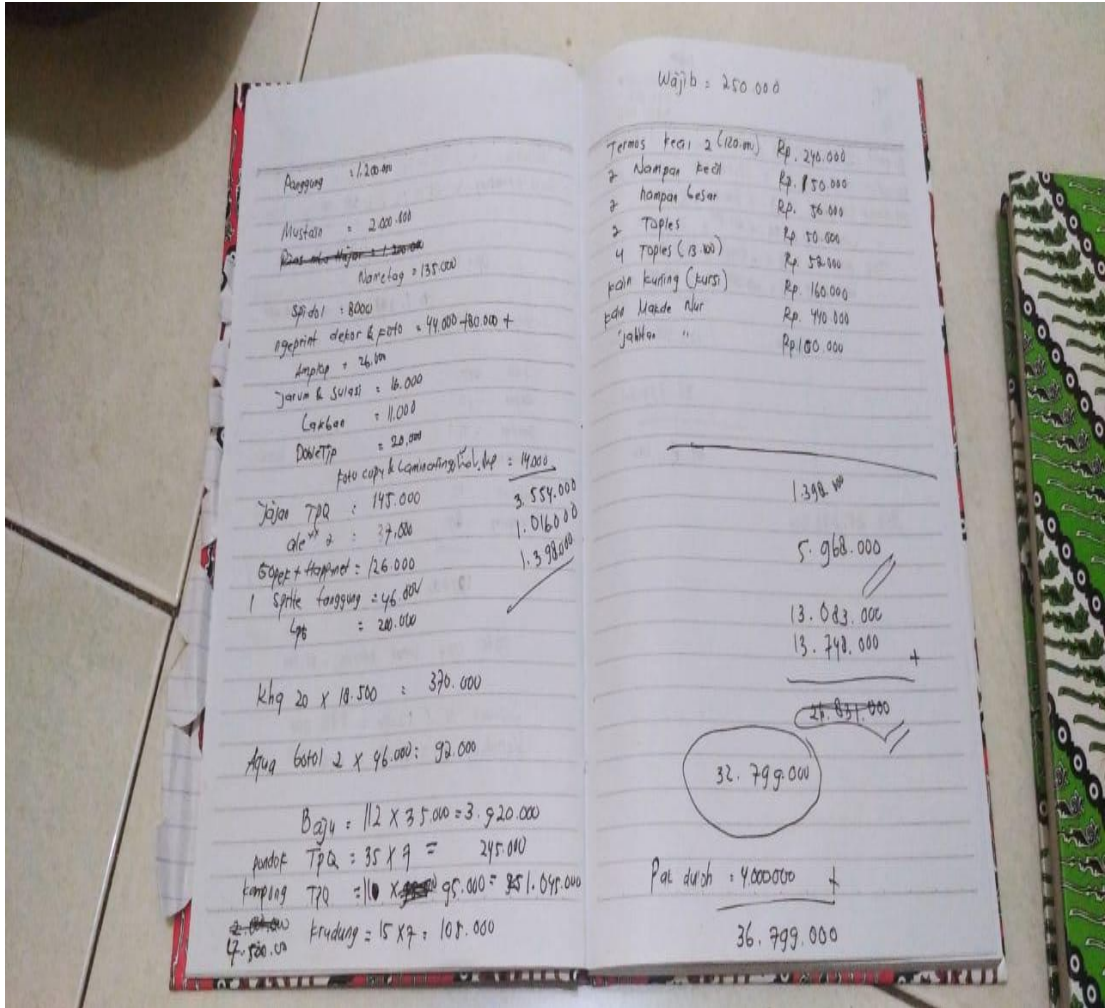 Panggung : 1.200.000
Mustaso = 2.000.000
Nametag = 135.000
Spidol : 8000
ngeprint dekor & foto = 44.000 + 80.000 +
Amplop = 26.000
Jarum & Sulasi = 16.000
Lakban = 11.000
DobleTip = 20.000
foto copy & Laminating = 14.000
3.554.000
Jajan TPQ : 145.000
1.016000
ale" 2 : 37.000
1.398.000
Gopek + Happinet = 126.000
1 Sprite tanggung = 46.000
= 200.000
khq 20 X 18.500 = 370.000
Aqua botol 2 X 46.000 : 92.000
Baju = 112 X 35.000 = 3.920.000
pondok TPQ : 35 X 7 = 245.000
kampung TPQ = 11 X 95.000 = 1.045.000
krudung = 15 X 7 = 105.000
Wajib = 250.000
Termos kecil 2 (120.000) Rp. 240.000
2 Nampan kecil Rp. 50.000
2 nampan besar Rp. 56.000
2 Toples Rp 50.000
4 Toples (13.000) Rp. 52.000
kain kuning (kursi) Rp. 160.000
kain Makde Nur Rp. 440.000
jahitan " Rp 100.000
1.398.000
5.968.000
13.083.000
13.748.000 +
26.831.000
32.799.000
Pak duroh = 4.000000 +
36.799.000